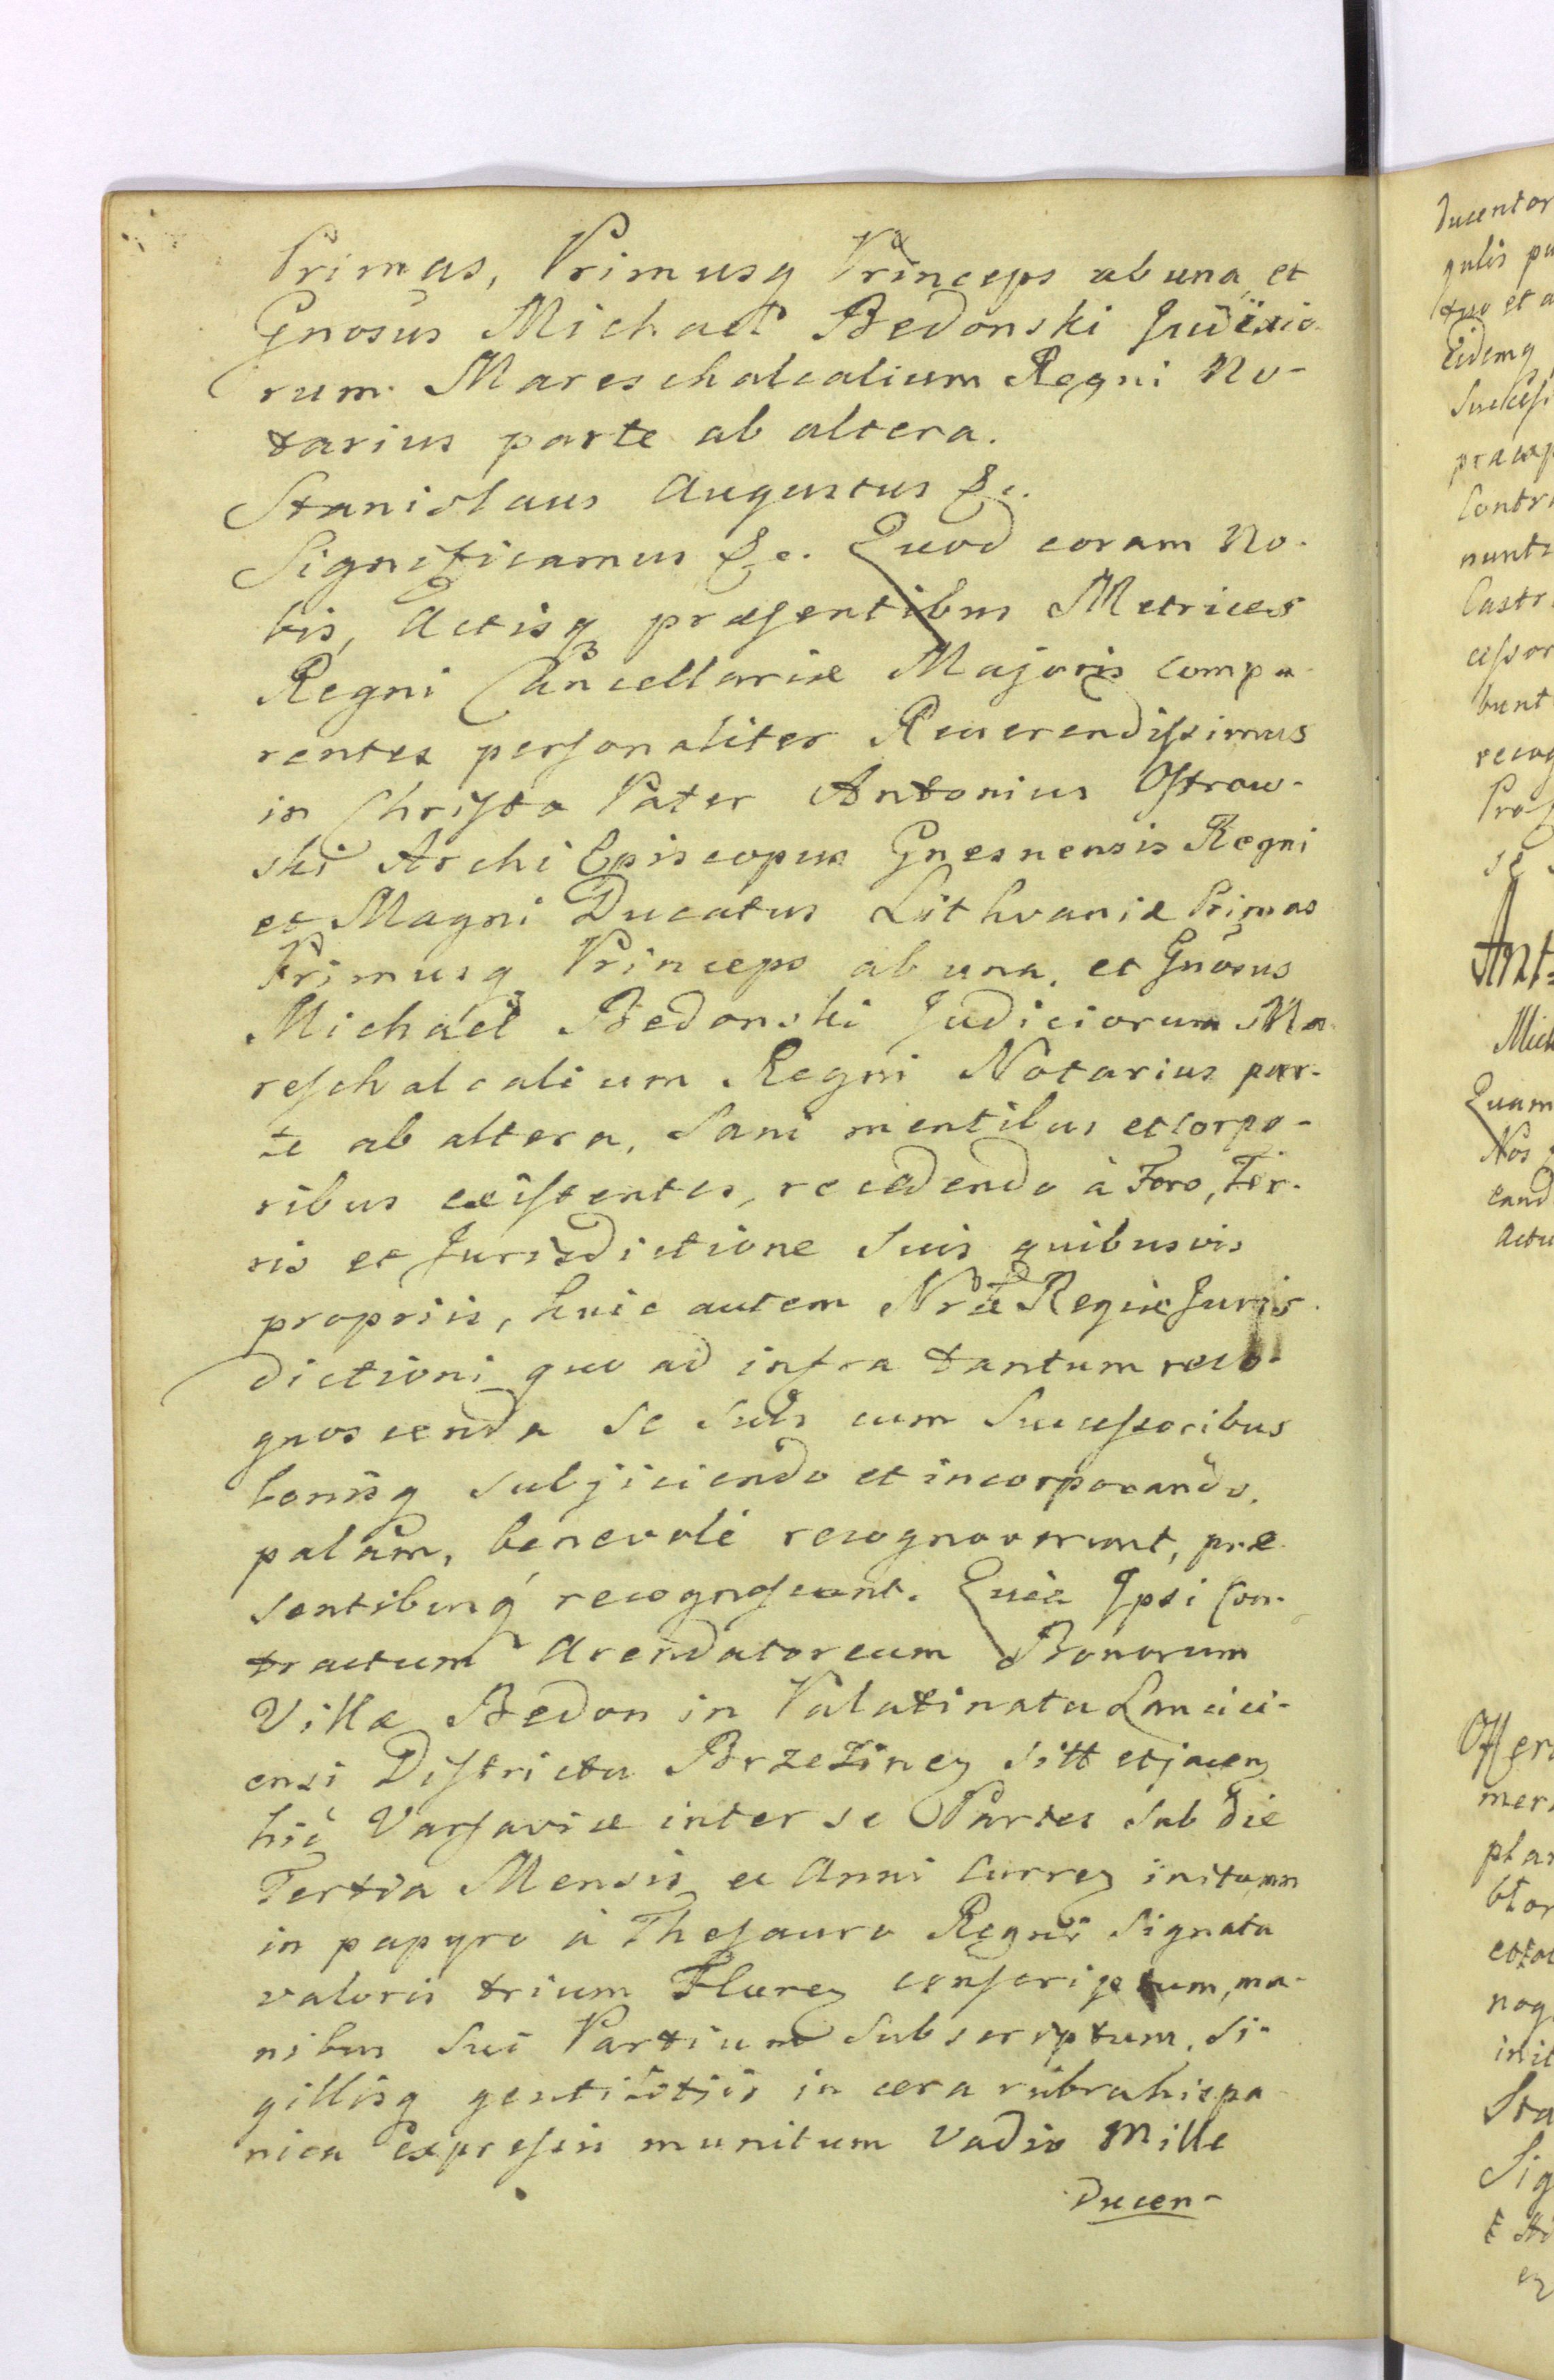 Primas, Primusq Princeps ab una, et
Gnosus Michael Bedonski Judicio-
rum Mareschalcalium Regni No-
tarius parte ab altera.
Stanislaus Augustus &c.
Significamus &c. Quod coram No-
bis, Actisq præsentibus Metrices
Regni Cancellariæ Majoris compa-
rentes personaliter Reuerendissimus
in Christo Pater Antonius Ostrow-
ski Archi Episcopus Gnesnensis Regni
et Magni Ducatus Lithvaniæ Primas
Primusq Princeps ab una, et Gnosus
Michael Bedonski Judiciorum Ma-
reschalcalium Regni Notarius par-
te ab altera, Sani mentibus et corpo-
ribus existentes, recedendo à Foro, Ter-
ris et Jurisdictione Suis quibusvis
propriis, huic autem Nræ Regiæ Juris-
dictioni quo ad infra tantum reco-
gnoscenda Se Suis cum Successoribus
bonisq Subjiciendo et incorporando,
palàm, benevolè recognoverunt, præ
sentibusq recognoscunt. Quia Ipsi Con-
tractum Arendatoreum Bonorum
Villæ Bedon in Palatinatu Lancici-
ensi Districtu Brzezinen sitt et jacen
hic Varsaviæ inter se Partes Sub die
Tertia Mensis et Anni Curren initum
in papyro à Thesauro Regni Signata
valoris trium Floren conscriptum, ma-
nibus Sui Partium Subscriptum, Si-
gillisq gentilitiis in cera rubra hispa
nica expressis munitum Vadio Mille
Ducen-
Ducentor
gulis
Eidemq
Contr
nunt
Castr
bunt
recog
se
Ant
Mich
Quam
Nos
eand
Actu